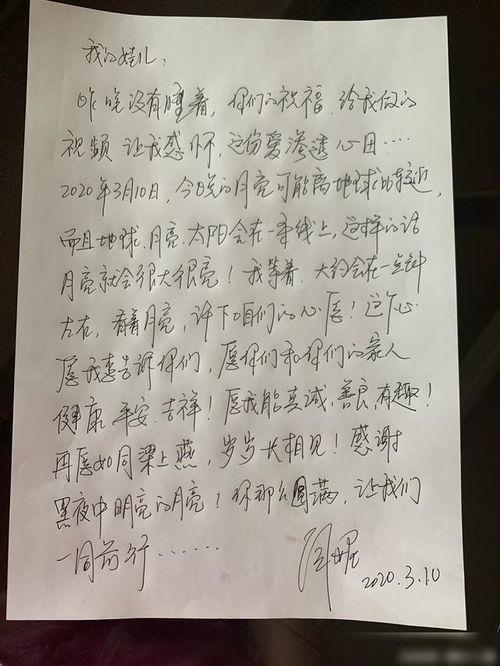 我的娃儿：
昨晚没有睡着，你们的祝福，给我做的
视频 让我感怀，这份爱渗透心田……
2020年3月10日，今晚的月亮可能离地球比较近，
而且地球、月亮、太阳会在一条线上，这样的话
月亮就会很大很亮！我等着，大约会在一点钟
左右，看着月亮，许下咱们的心愿！这个心
愿我想告诉你们，愿你们和你们的家人
健康、平安、吉祥！愿我能真诚，善良，有趣！
再愿如同梁上燕，岁岁长相见！感谢
黑夜中明亮的月亮！你那么圆满，让我们
一同前行……
闫妮
2020.3.10